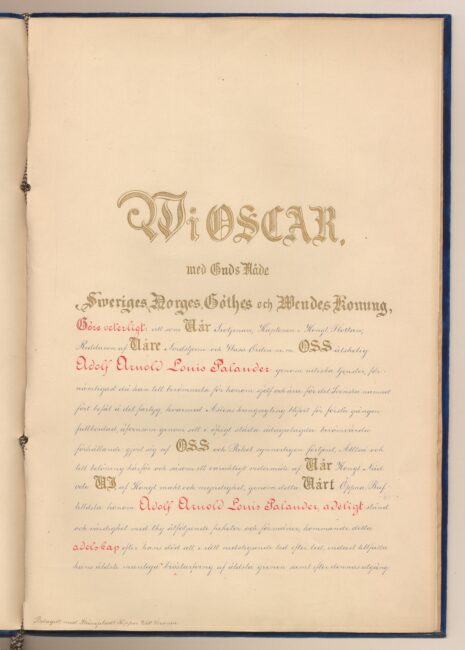 Wi OSCAR,
med Guds Nåde
Sweriges, Norges, Göthes och Wendes Konung,
Göre veterligt: att som Uår Kaptenen i Kongl. Flottan,
Riddaren af Uåre Nordstjerne och Wasa Orden m. m. OSS älskelig
Adolf Arnold Louis Palander genom nitiska tjenster, för-
nämligast då han till berömmelse för honom sjelf och ära för det Svenska namnet
fört befäl å det fartyg, hvarmed Asiens kringsegling blifvit för första gången
fullbordad, äfvensom genom sitt i öfrigt städse ådagalagda berömvärda
förhållande gjort sig af OSS och Riket synnerligen förtjent, Alltså och
till belöning härför och såsom ett varaktigt vedermäle af Uår Kongl. Nåd
vilje UI, af Kongl. makt och myndighet, genom detta Uårt Öppna Bref
tilldela honom Adolf Arnold Louis Palander, adeligt stånd
och värdighet med thy åtföljande friheter och förmåner, kommande detta
adelskap efter hans död att i rätt nedstigande led efter led, endast tillfalla
hans äldste manlige bröstarfving af äldsta grenen samt efter dennas utgång